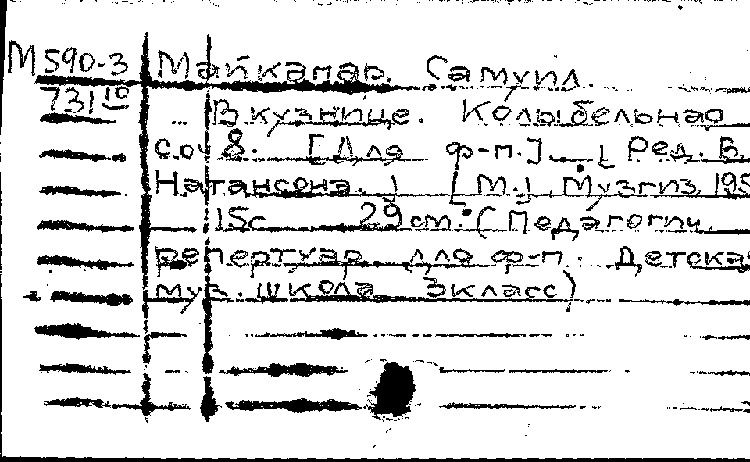 М590-3 Майкапар. Самуил.
731 10 .. В кузнице. Колыбельная
соч 8. [Для ф-п.]. [Ред. В.
Натансона.] [М.], Музгиз, 195
15с 29 cm. (Педагогич.
репертуар для ф-п. Детская
муз. школа 3 класс)